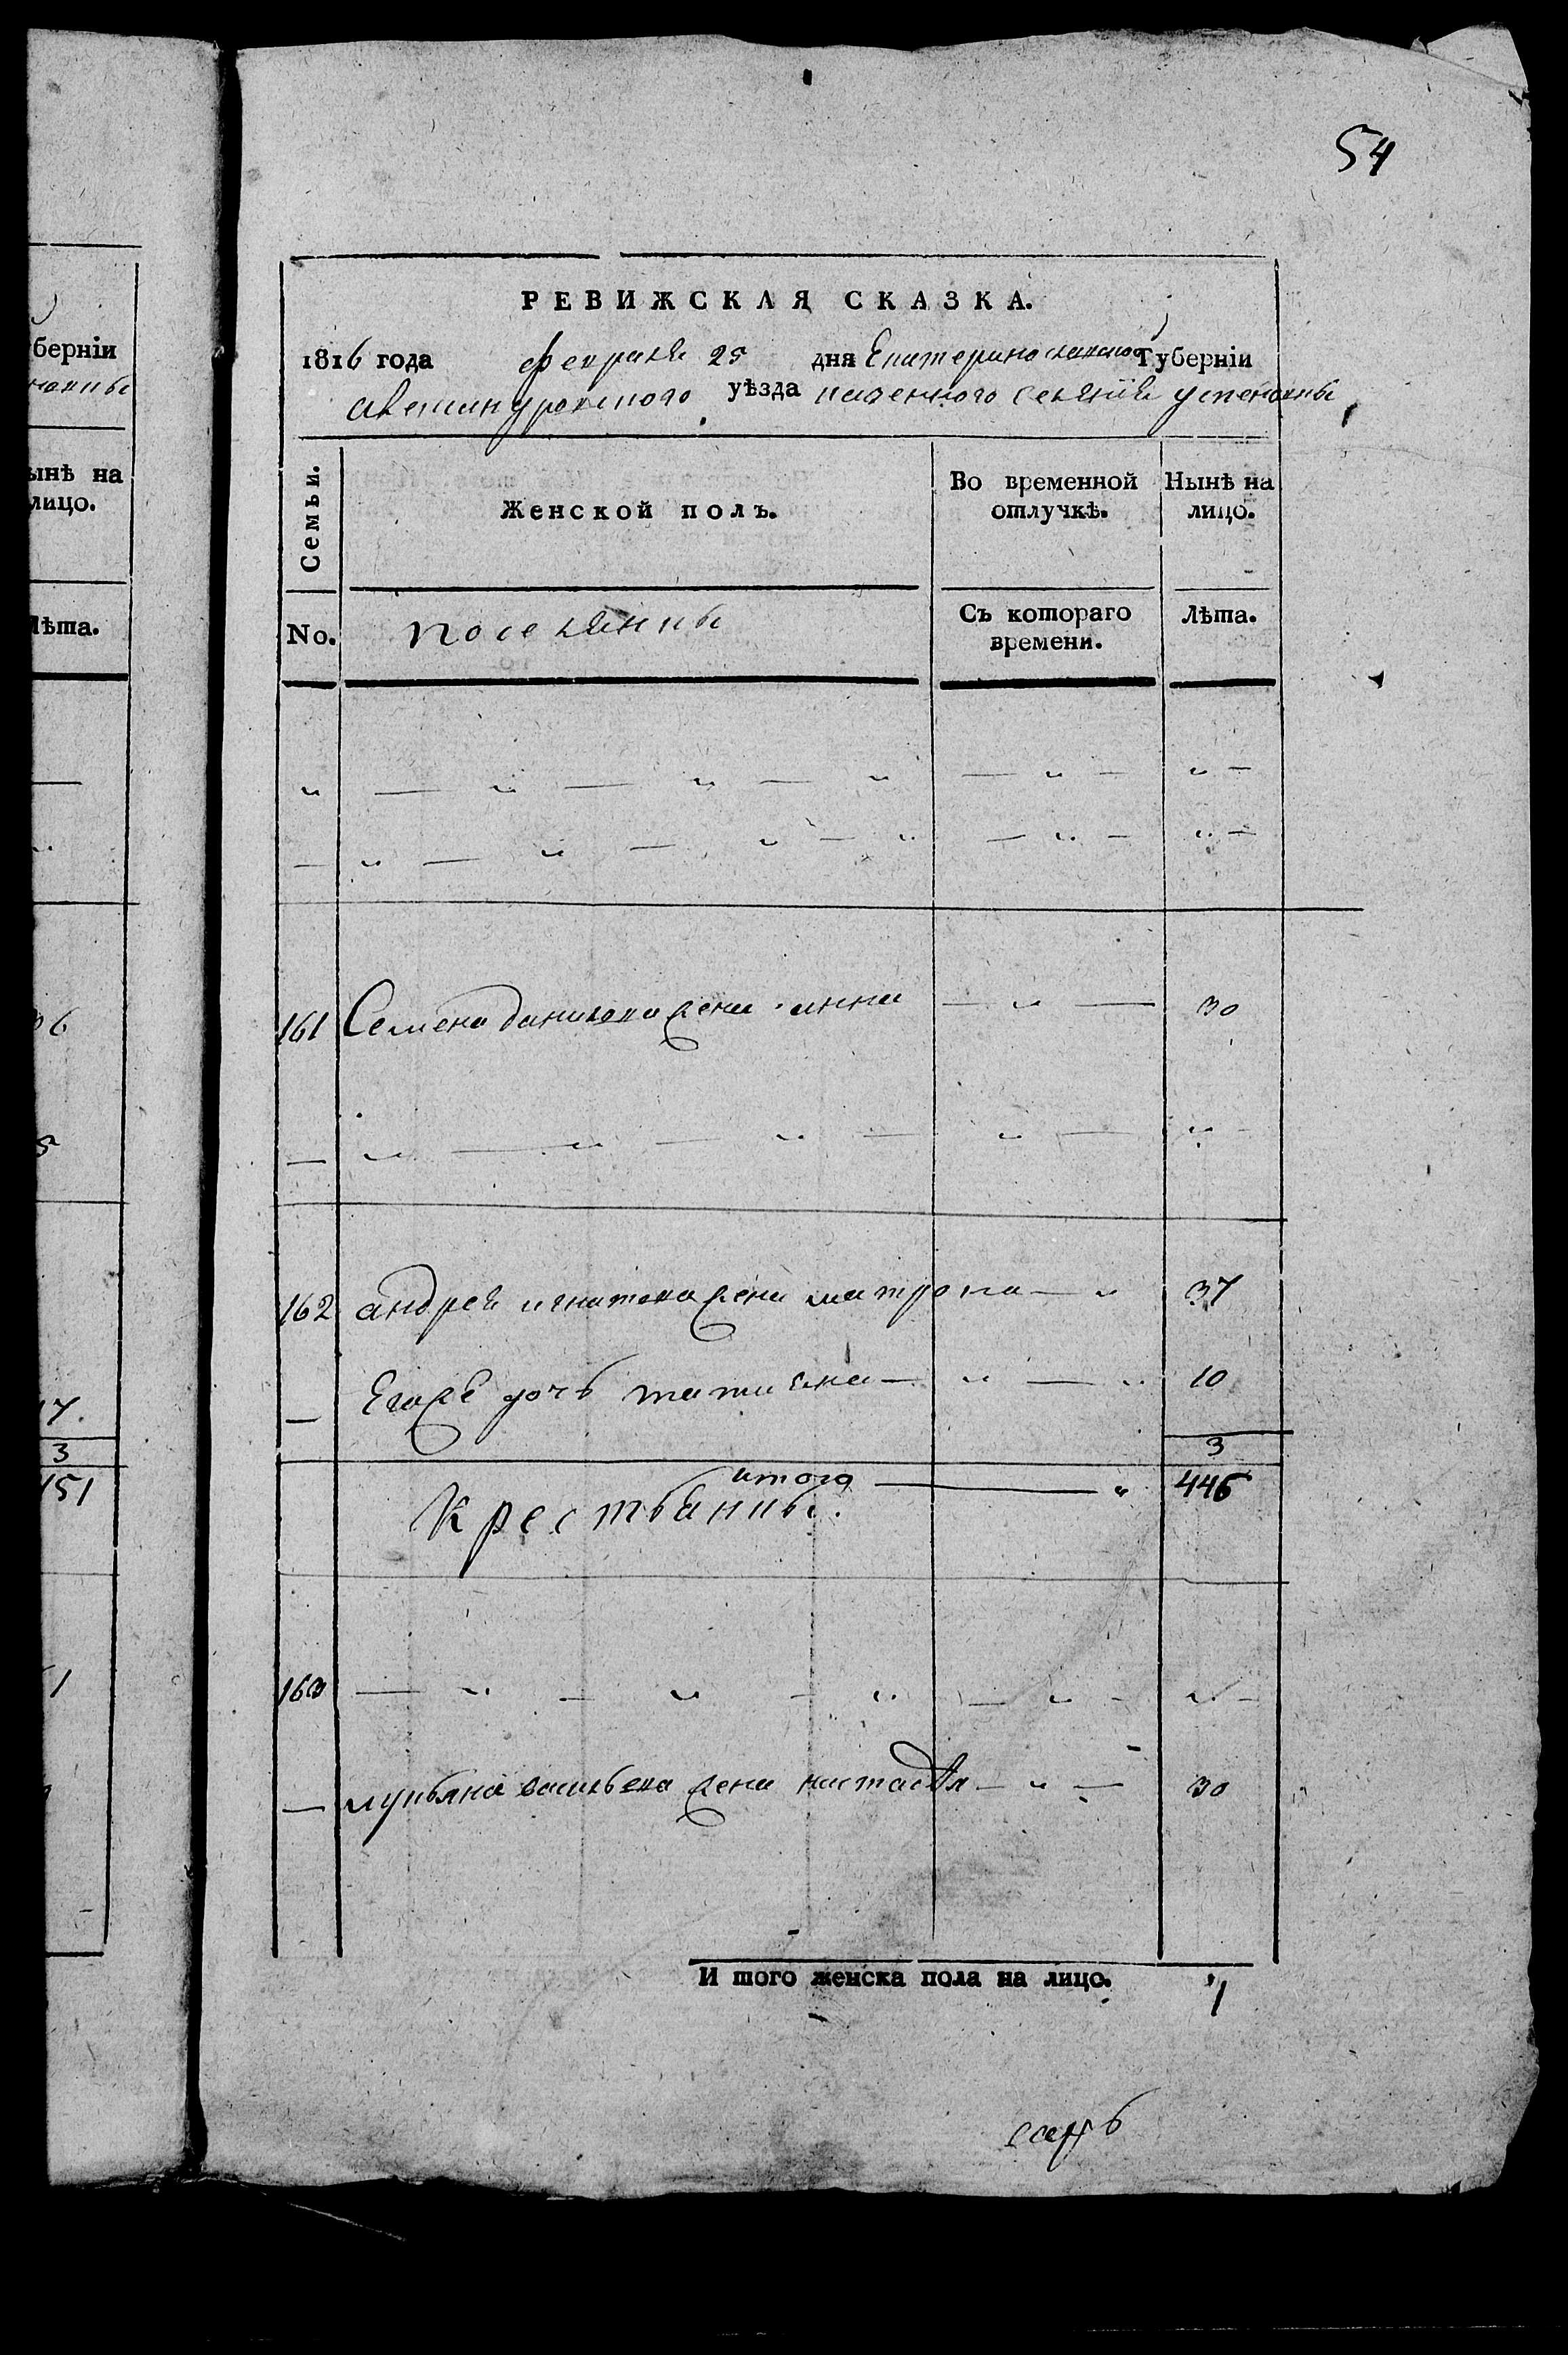 54
берніи
новки
ынѣ на
лицо.
Лѣта.
6
5
17.
3
151
1
РЕВИЖСКАЯ СКАЗКА.
1816 года февраля 25 дня Екатеринославской Губерніи
александровского уѣзда казенного селения успеновки
Семьи. Женской полъ. Во временной отлучкѣ. Нынѣ на лицо.
No. поселянки Съ котораго времени. Лѣта.
„ — „ — „ — „ — „ — „ —
— „ — „ — „ — „ — „ — „ —
161 Семена данилова жена анна — „ — 30
— „ — „ — „ — „ — „
162 андрея игнатова жена матрона — „ 37
— Егоже дочь татияна — „ — „ 10
3
итого — „ 446
Крестьянки.
163 — „ — „ — „ — „ — „ —
— лукьяна васильева жена настасья — „ — 30
И того женска пола на лицо. 4